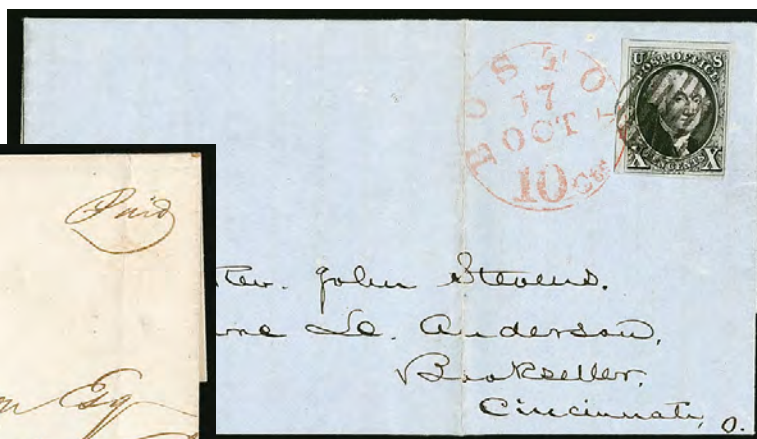 BOSTON
17
OCT
10 cts
U S
POST OFFICE
X TEN CENTS X
Rev. John Stevens.
Anderson,
Bookseller,
Cincinnati, O.
Paid
Esq